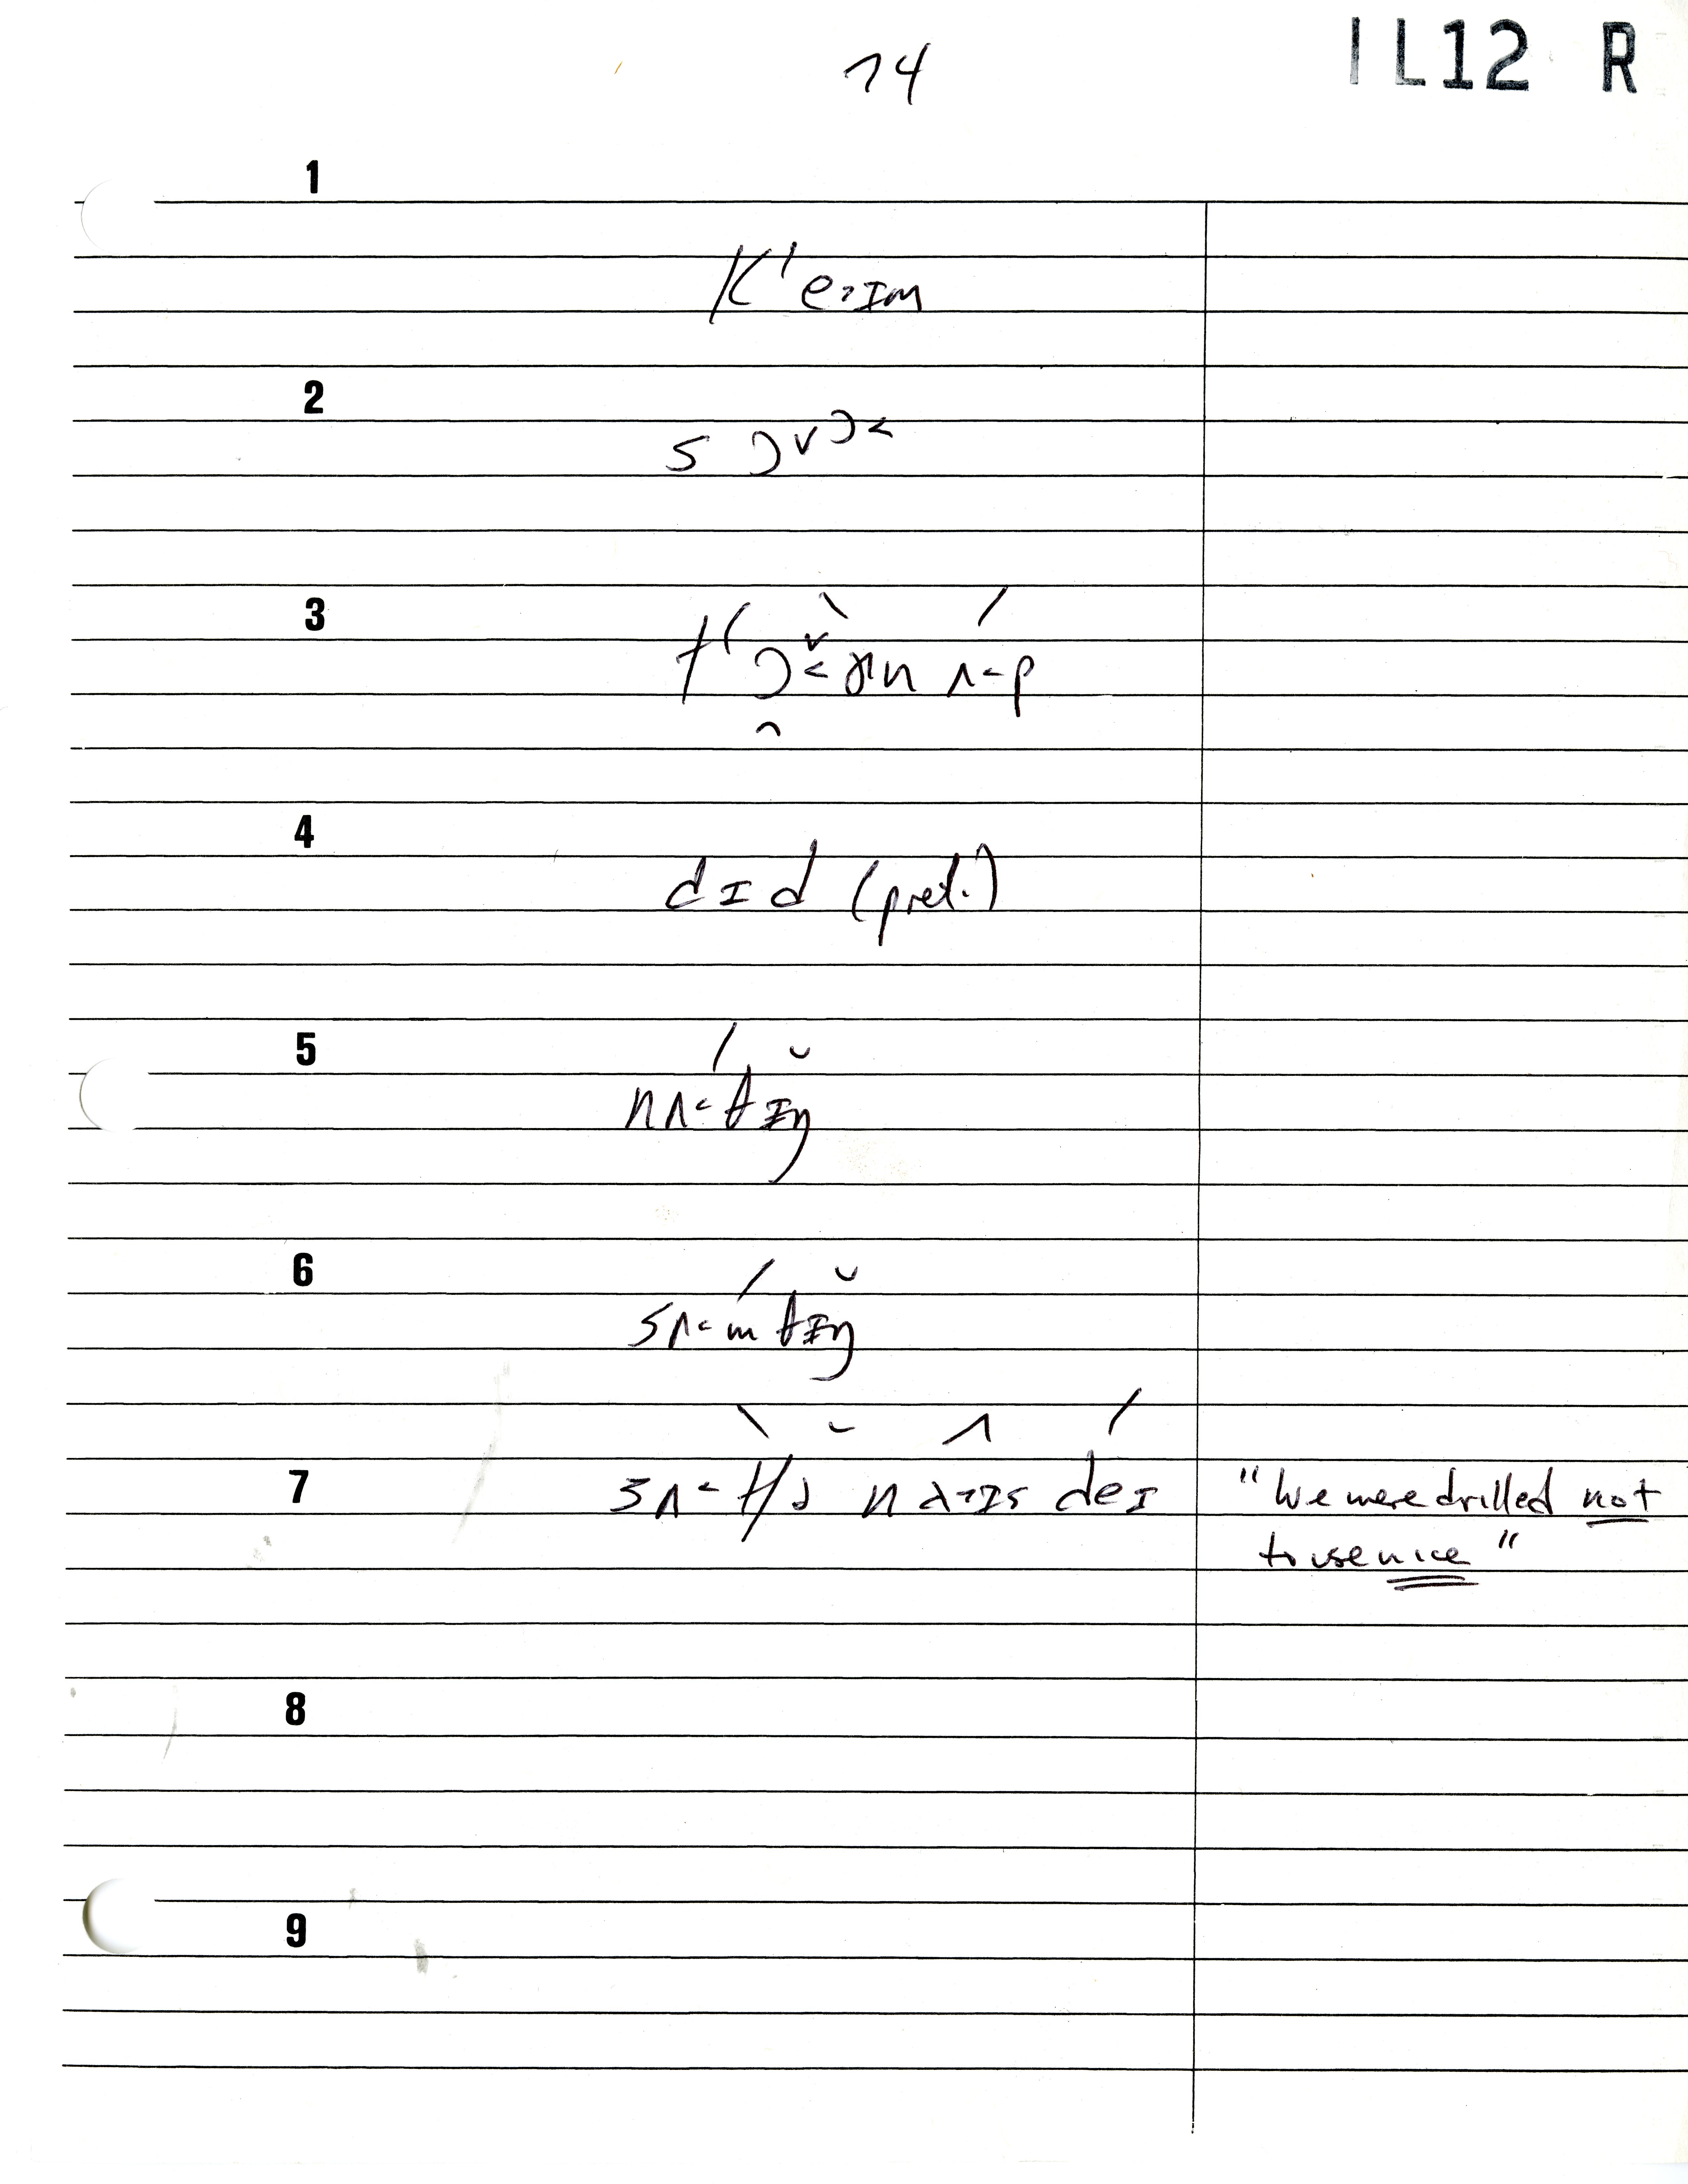 14
1 L12 R
1
kʻe˃ɪm
2
s ɔ˅ɔ˂
3
tʻɔ̯˂̌ɚn ʌ˂p
4
dɪd (pret.)
5
nʌ˂θɪ̆ŋ
6
sʌ˂mθɪ̆ŋ
7
sʌ˂tʃə na˃ɪs deɪ
"We were drilled not
to use nice"
8
9